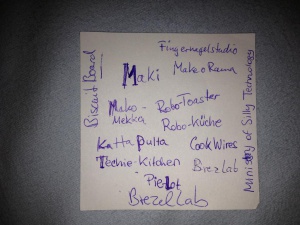 Fingernagelstudio
Biscuit Board
Maki
MakeoRama
Mako-
Mekka
Robo-Toaster
Robo-Küche
KaTTaPulTa
CookWires
Techie-Kitchen
BrezLab
PieLot
BrezelLab
Ministry of Silly Technology